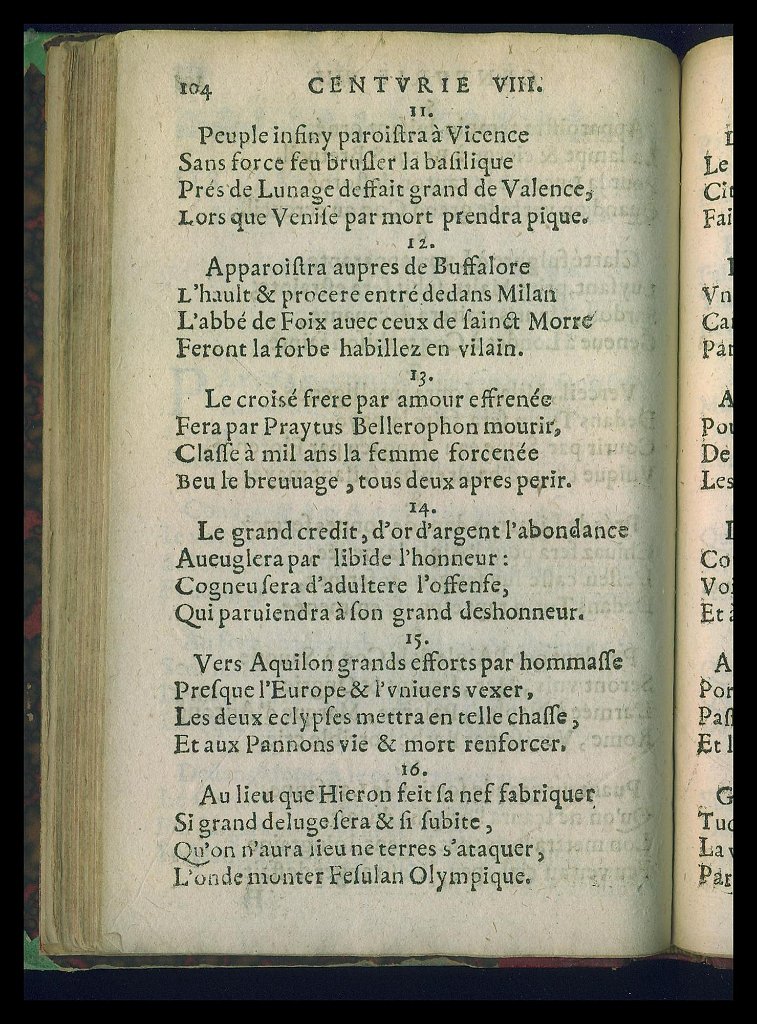 104 CENTVRIE VIII.
11.
Peuple infiny paroiſtra à Vicence
Sans force feu bruſler la baſilique
Prés de Lunage deffait grand de Valence,
Lors que Veniſe par mort prendra pique.
12.
Apparoiſtra aupres de Buffalore
L'hault & procere entré dedans Milan
L'abbé de Foix auec ceux de ſainct Morre
Feront la forbe habillez en vilain.
13.
Le croisé frere par amour effrenée
Fera par Praytus Bellerophon mourir,
Claſſe à mil ans la femme forcenée
Beu le breuuage, tous deux apres perir.
14.
Le grand credit, d'or d'argent l'abondance
Aueuglera par libide l'honneur:
Cogneu ſera d'adultere l'offenſe,
Qui paruiendra à ſon grand deshonneur.
15.
Vers Aquilon grands efforts par hommaſſe
Preſque l'Europe & l'vniuers vexer,
Les deux eclypſes mettra en telle chaſſe,
Et aux Pannons vie & mort renforcer.
16.
Au lieu que Hieron feit ſa nef fabriquer
Si grand deluge ſera & ſi ſubite,
Qu'on n'aura lieu ne terres s'ataquer,
L'onde monter Feſulan Olympique.
Le
Cit
Fai
Vn
Car
Par
A
Pou
De
Les
Co
Voi
Et à
A
Por
Paſſ
Et l
G
Tuc
La v
Par